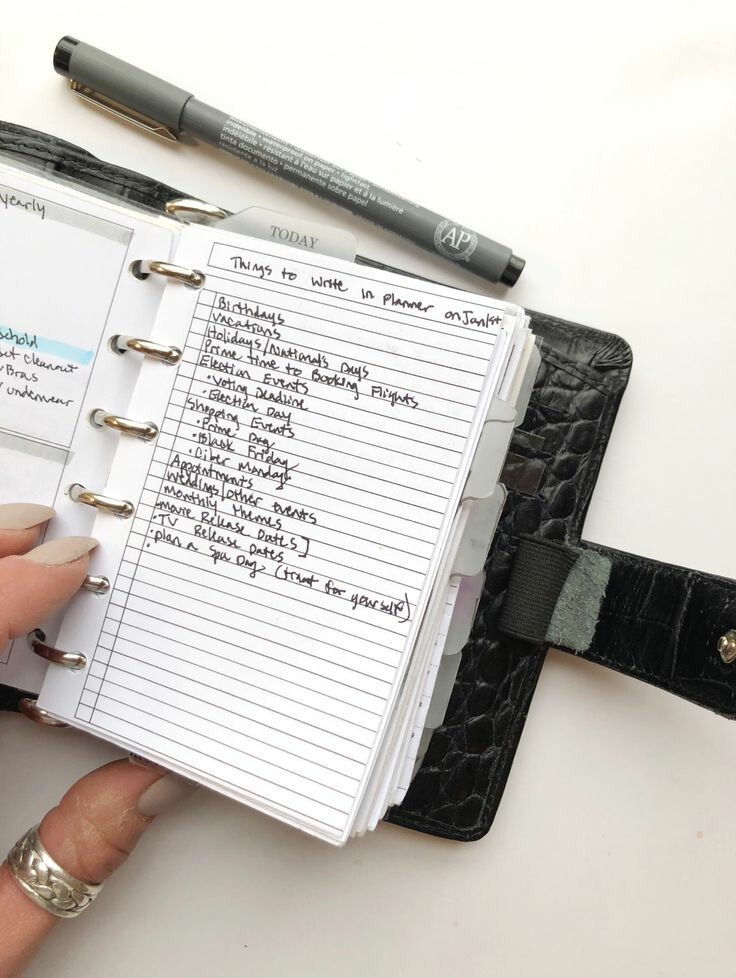 indelible • waterproof on paper • lightfast
indélébile • résistant à l'eau sur papier et à la lumière
tinta documento • permanente sobre papel
resistente a la luz
AP
yearly
TODAY
Things to write in Planner on Jan 1st
Birthdays
Vacations
Holidays/National's Days
Prime time to Booking Flights
Election Events
• Voting Deadline
• Election Day
Shopping Events
• Prime Day
• Black Friday
• Ciber Monday
Appointments
Weddings/other events
Monthly themes
• movie Release Dates]
• TV Release Dates
• plan a Spa Day (treat for yourself)
cleanout
Bras
underwear